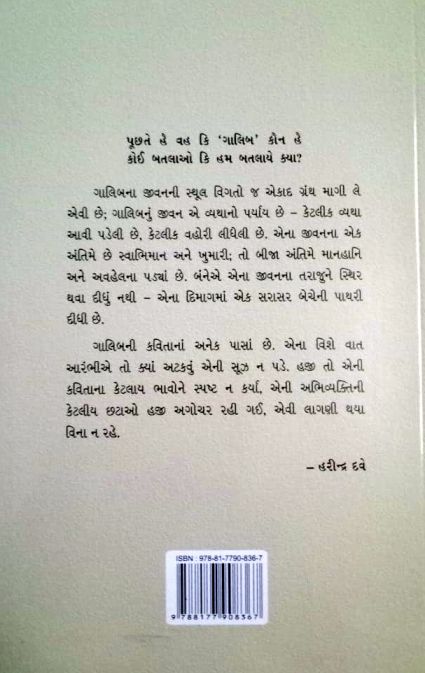 પૂછતે હે વહ કિ ‘ગાલિબ’ કૌન હે
કોઈ બતલાઓ કિ હમ બતલાયે ક્યા?
ગાલિબના જીવનની સ્થૂલ વિગતો જ એકાદ ગ્રંથ માગી લે
એવી છે; ગાલિબનું જીવન એ વ્યથાનો પર્યાય છે – કેટલીક વ્યથા
આવી પડેલી છે, કેટલીક વહોરી લીધેલી છે. એના જીવનના એક
અંતિમે છે સ્વાભિમાન અને ખુમારી; તો બીજા અંતિમે માનહાનિ
અને અવહેલના પડ્યાં છે. બંનેએ એના જીવનના તરાજુને સ્થિર
થવા દીધું નથી – એના દિમાગમાં એક સરાસર બેચેની પાથરી
દીધી છે.
ગાલિબની કવિતાનાં અનેક પાસાં છે. એના વિશે વાત
આરંભીએ તો ક્યાં અટકવું એની સૂઝ ન પડે. હજી તો એની
કવિતાના કેટલાય ભાવોને સ્પષ્ટ ન કર્યા, એની અભિવ્યક્તિની
કેટલીય છટાઓ હજી અગોચર રહી ગઈ, એવી લાગણી થયા
વિના ન રહે.
– હરીન્દ્ર દવે
ISBN : 978-81-7790-836-7
9 788177 908367